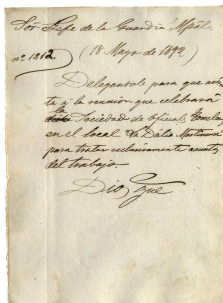 Sor Gefe de la Guardia Mpal.
nº 1212. (18 Mayo de 1892)
Delegandole para que asis
ta á la reunion que celebrará
la Sociedad de Oficial
en el local Martinense
para tratar esclusivamente asuntos
del trabajo.
Dios, Gue